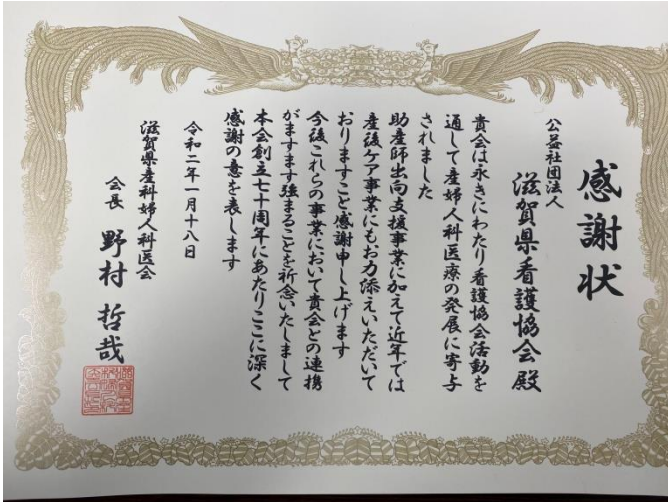 感謝状
公益社団法人
滋賀県看護協会殿
貴会は永きにわたり看護協会活動を
通して産婦人科医療の発展に寄与
されました
助産師出向支援事業に加えて近年では
産後ケア事業にもお力添えいただいて
おりますこと感謝申し上げます
今後これらの事業において貴会との連携
がますます強まることを祈念いたしまして
本会創立七十周年にあたりここに深く
感謝の意を表します
令和二年一月十八日
滋賀県産科婦人科医会
会長 野村 哲哉